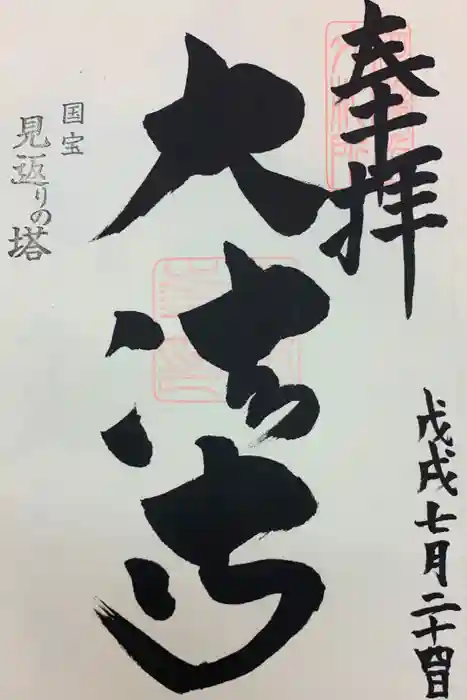 奉拝
大法寺
国宝
見返りの塔
戊戌七月二十四日